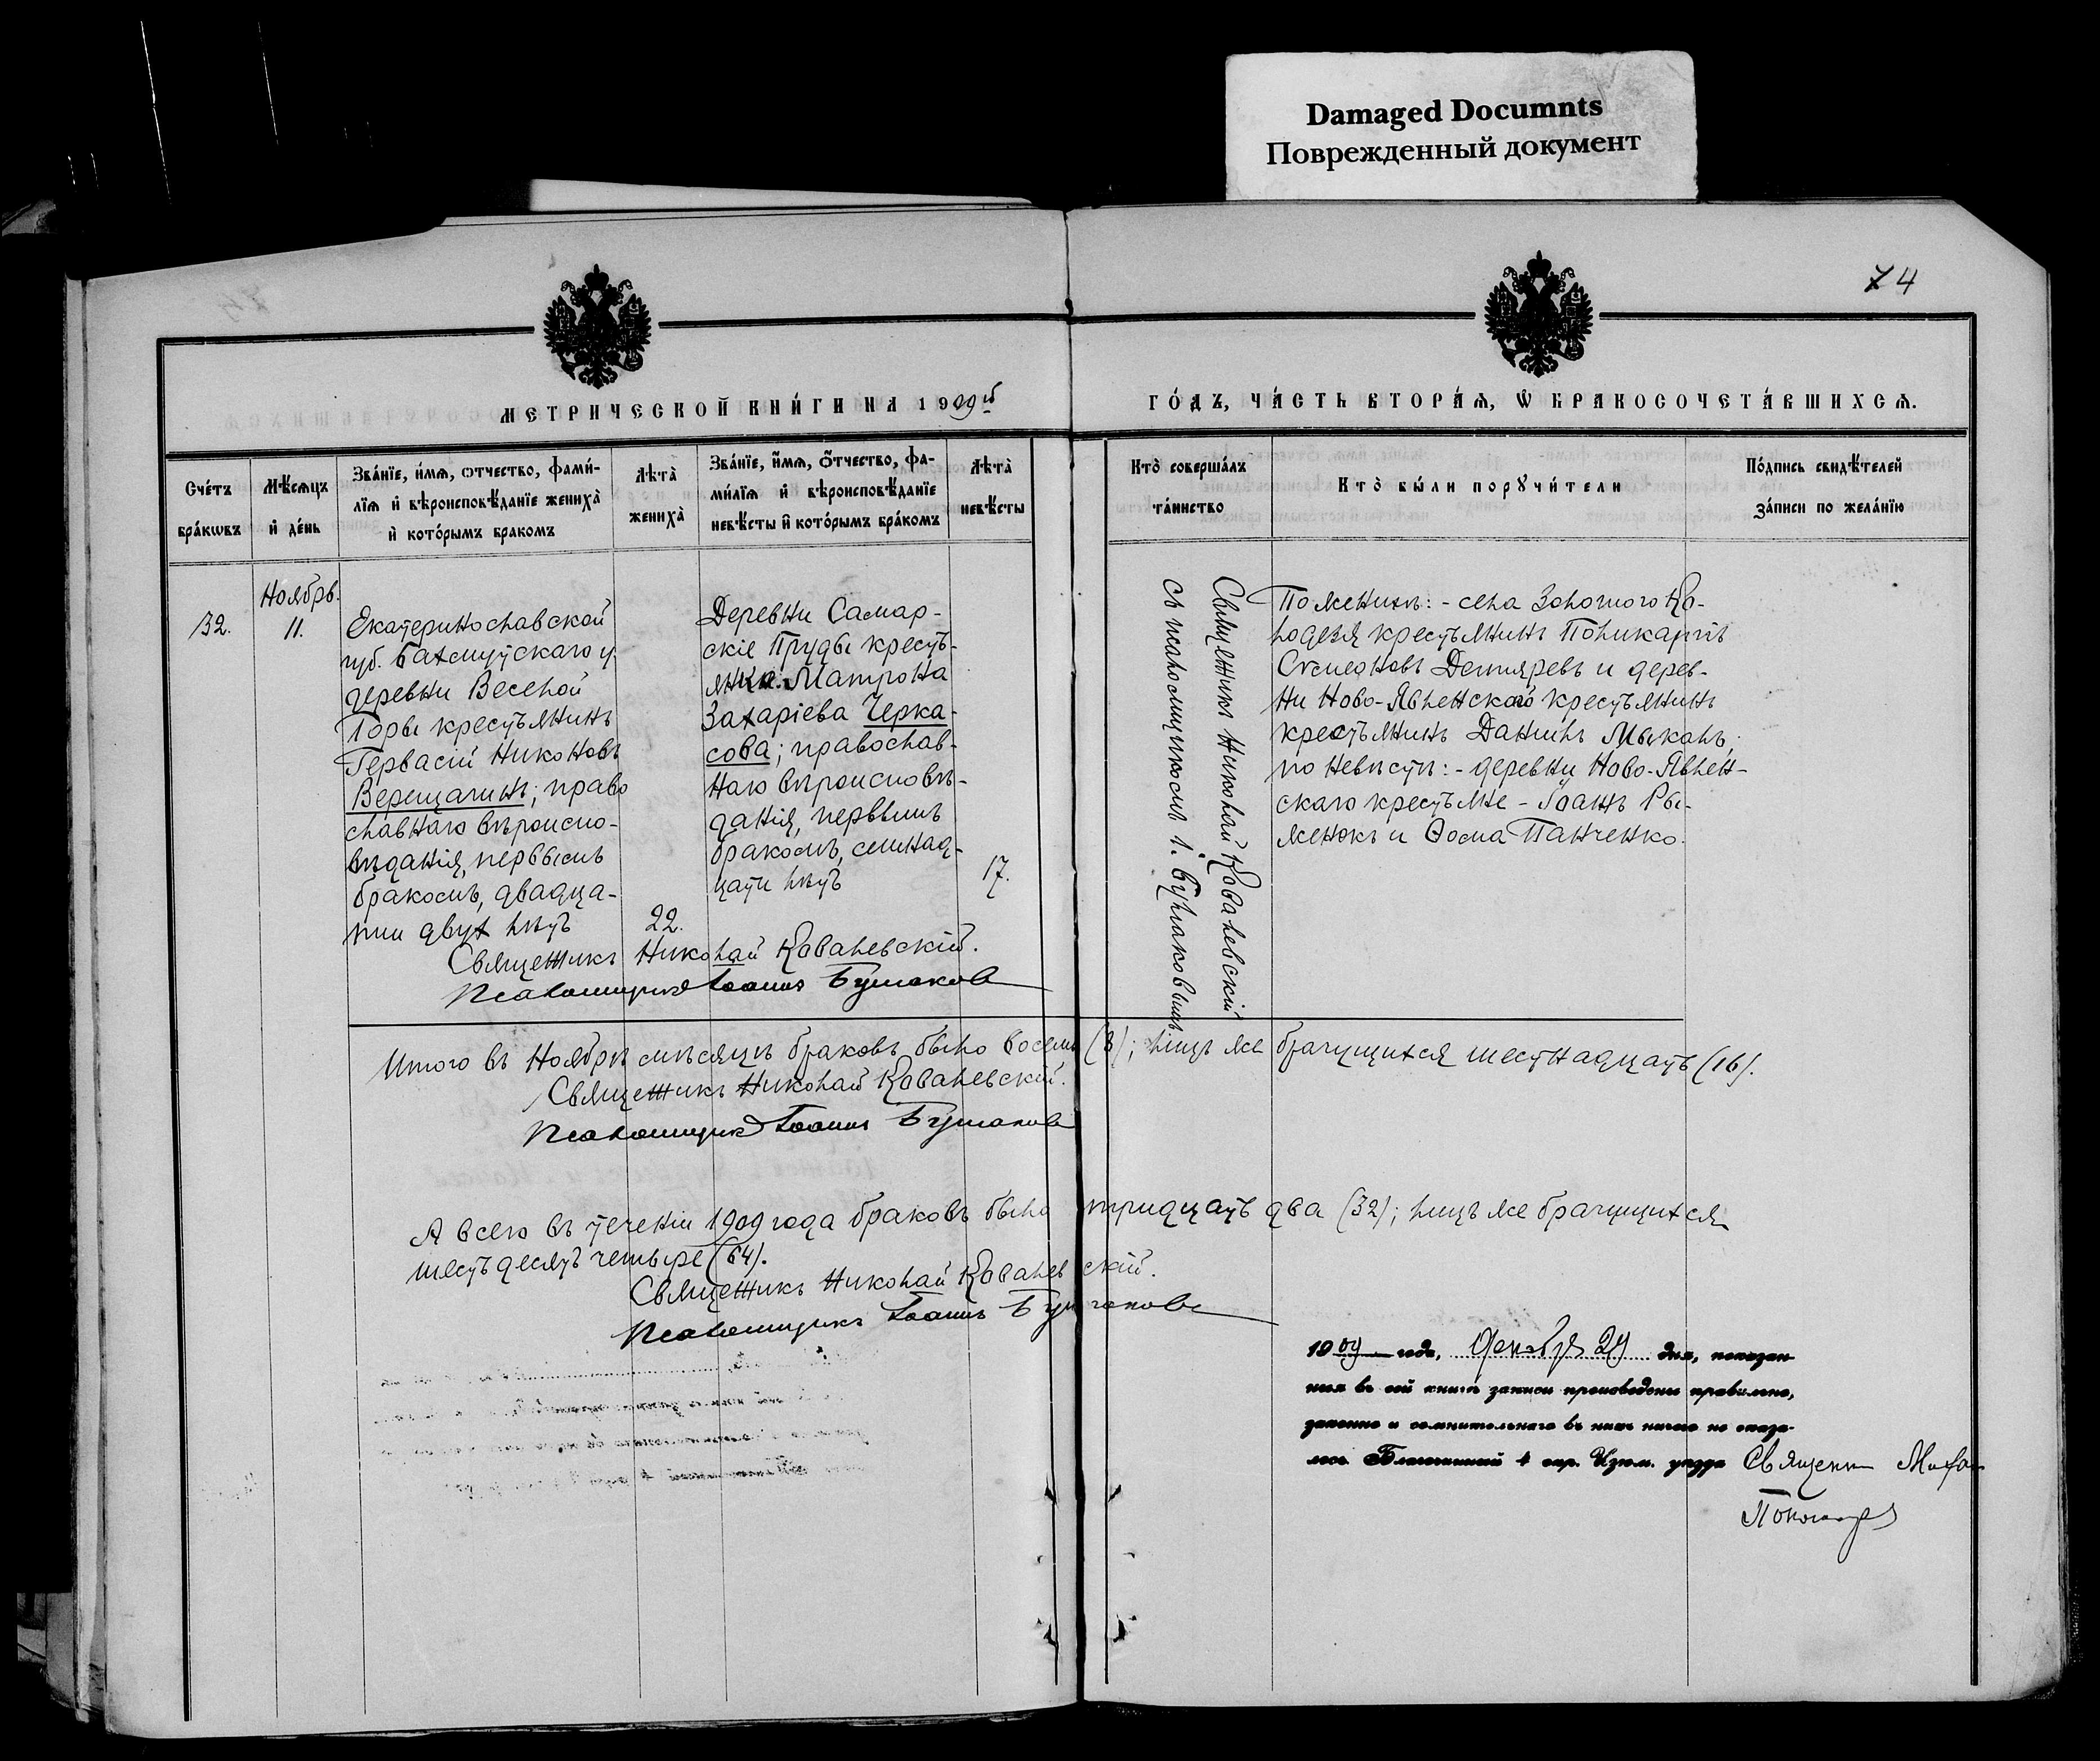 Damaged Documnts
Поврежденный документ
74
МЕТРИЧЕСКОЙ КНИ́ГИ НА 1909й
ГО́ДЪ, ЧА́СТЬ ВТОРА́Ѧ, Ѡ БРАКОСОЧЕТА́ВШИХСѦ.
Сче́тъ
бра́кѡвъ
Мѣ́сѧцъ
и҆ де́нь
Зва́нїе, и҆́мѧ, ѻ҆тчество, фами́-
лїѧ и҆ вѣроисповѣ́данїе жениха̀
и҆ кото́рымъ бракомъ
Лѣта̀
жениха̀
Зва́нїе, и҆́мѧ, ѻ҆́тчество, фа-
ми́лїѧ и҆ вѣроисповѣ́данїе
невѣ́сты и҆ кото́рымъ бра́комъ
Лѣта̀
невѣ́сты
Кто̀ соверша́лъ
та́инство
Кто̀ бы́ли порꙋчи́тели
По́дпись свидѣ́телей
за́писи по жела́нїю
32.
Ноябрь.
11.
Екатеринославской
губ. Бахмутскаго у.
деревни Веселой
Горы крестьянинъ
Гервасій Никоновъ
Верещагинъ; право
славнаго вѣроиспо-
вѣданія, первымъ
бракомъ, двадца-
ти двух лѣтъ
22.
Деревни Самар-
скіе Пруды кресть-
янка Матрона
Захаріева Черка-
сова; православ-
наго вѣроисповѣ-
данія, первымъ
бракомъ, семнад-
цати лѣтъ
17.
Священникъ Николай Ковалевскій
съ псаломщикомъ І. Бушаковымъ.
По женихѣ: - села Золотого Ко-
лодезя крестьянинъ Поликарпъ
Стефановъ Дегтяревъ и дерев-
ни Ново-Явленской крестьянинъ
крестьянинъ Даниилъ Мыкалъ;
по невѣстѣ: - деревни Ново-Явлен-
скаго крестьяне - Іоаннъ Ры-
женокъ и Ѳома Панченко.
Священникъ Николай Ковалевскій.
Псаломщикъ Іоаннъ Бушаковъ
Итого въ Ноябрѣ мѣсяцѣ браковъ было восемь (8); лицъ же брачущихся шестнадцать (16).
Священникъ Николай Ковалевскій.
Псаломщикъ Іоаннъ Бушаковъ
А всего въ теченіи 1909 года браковъ было тридцать два (32); лицъ же брачущихся
шестьдесятъ четыре (64).
Священникъ Николай Ковалевскій.
Псаломщикъ Іоаннъ Бушаковъ
1909 года, Декабря 29 дня, показан-
ныя въ сей книгѣ записи произведены правильно,
законно и сомнительнаго въ нихъ ничего не оказа-
лось Благочинный 4 окр. Изюм. уѣзда Священн